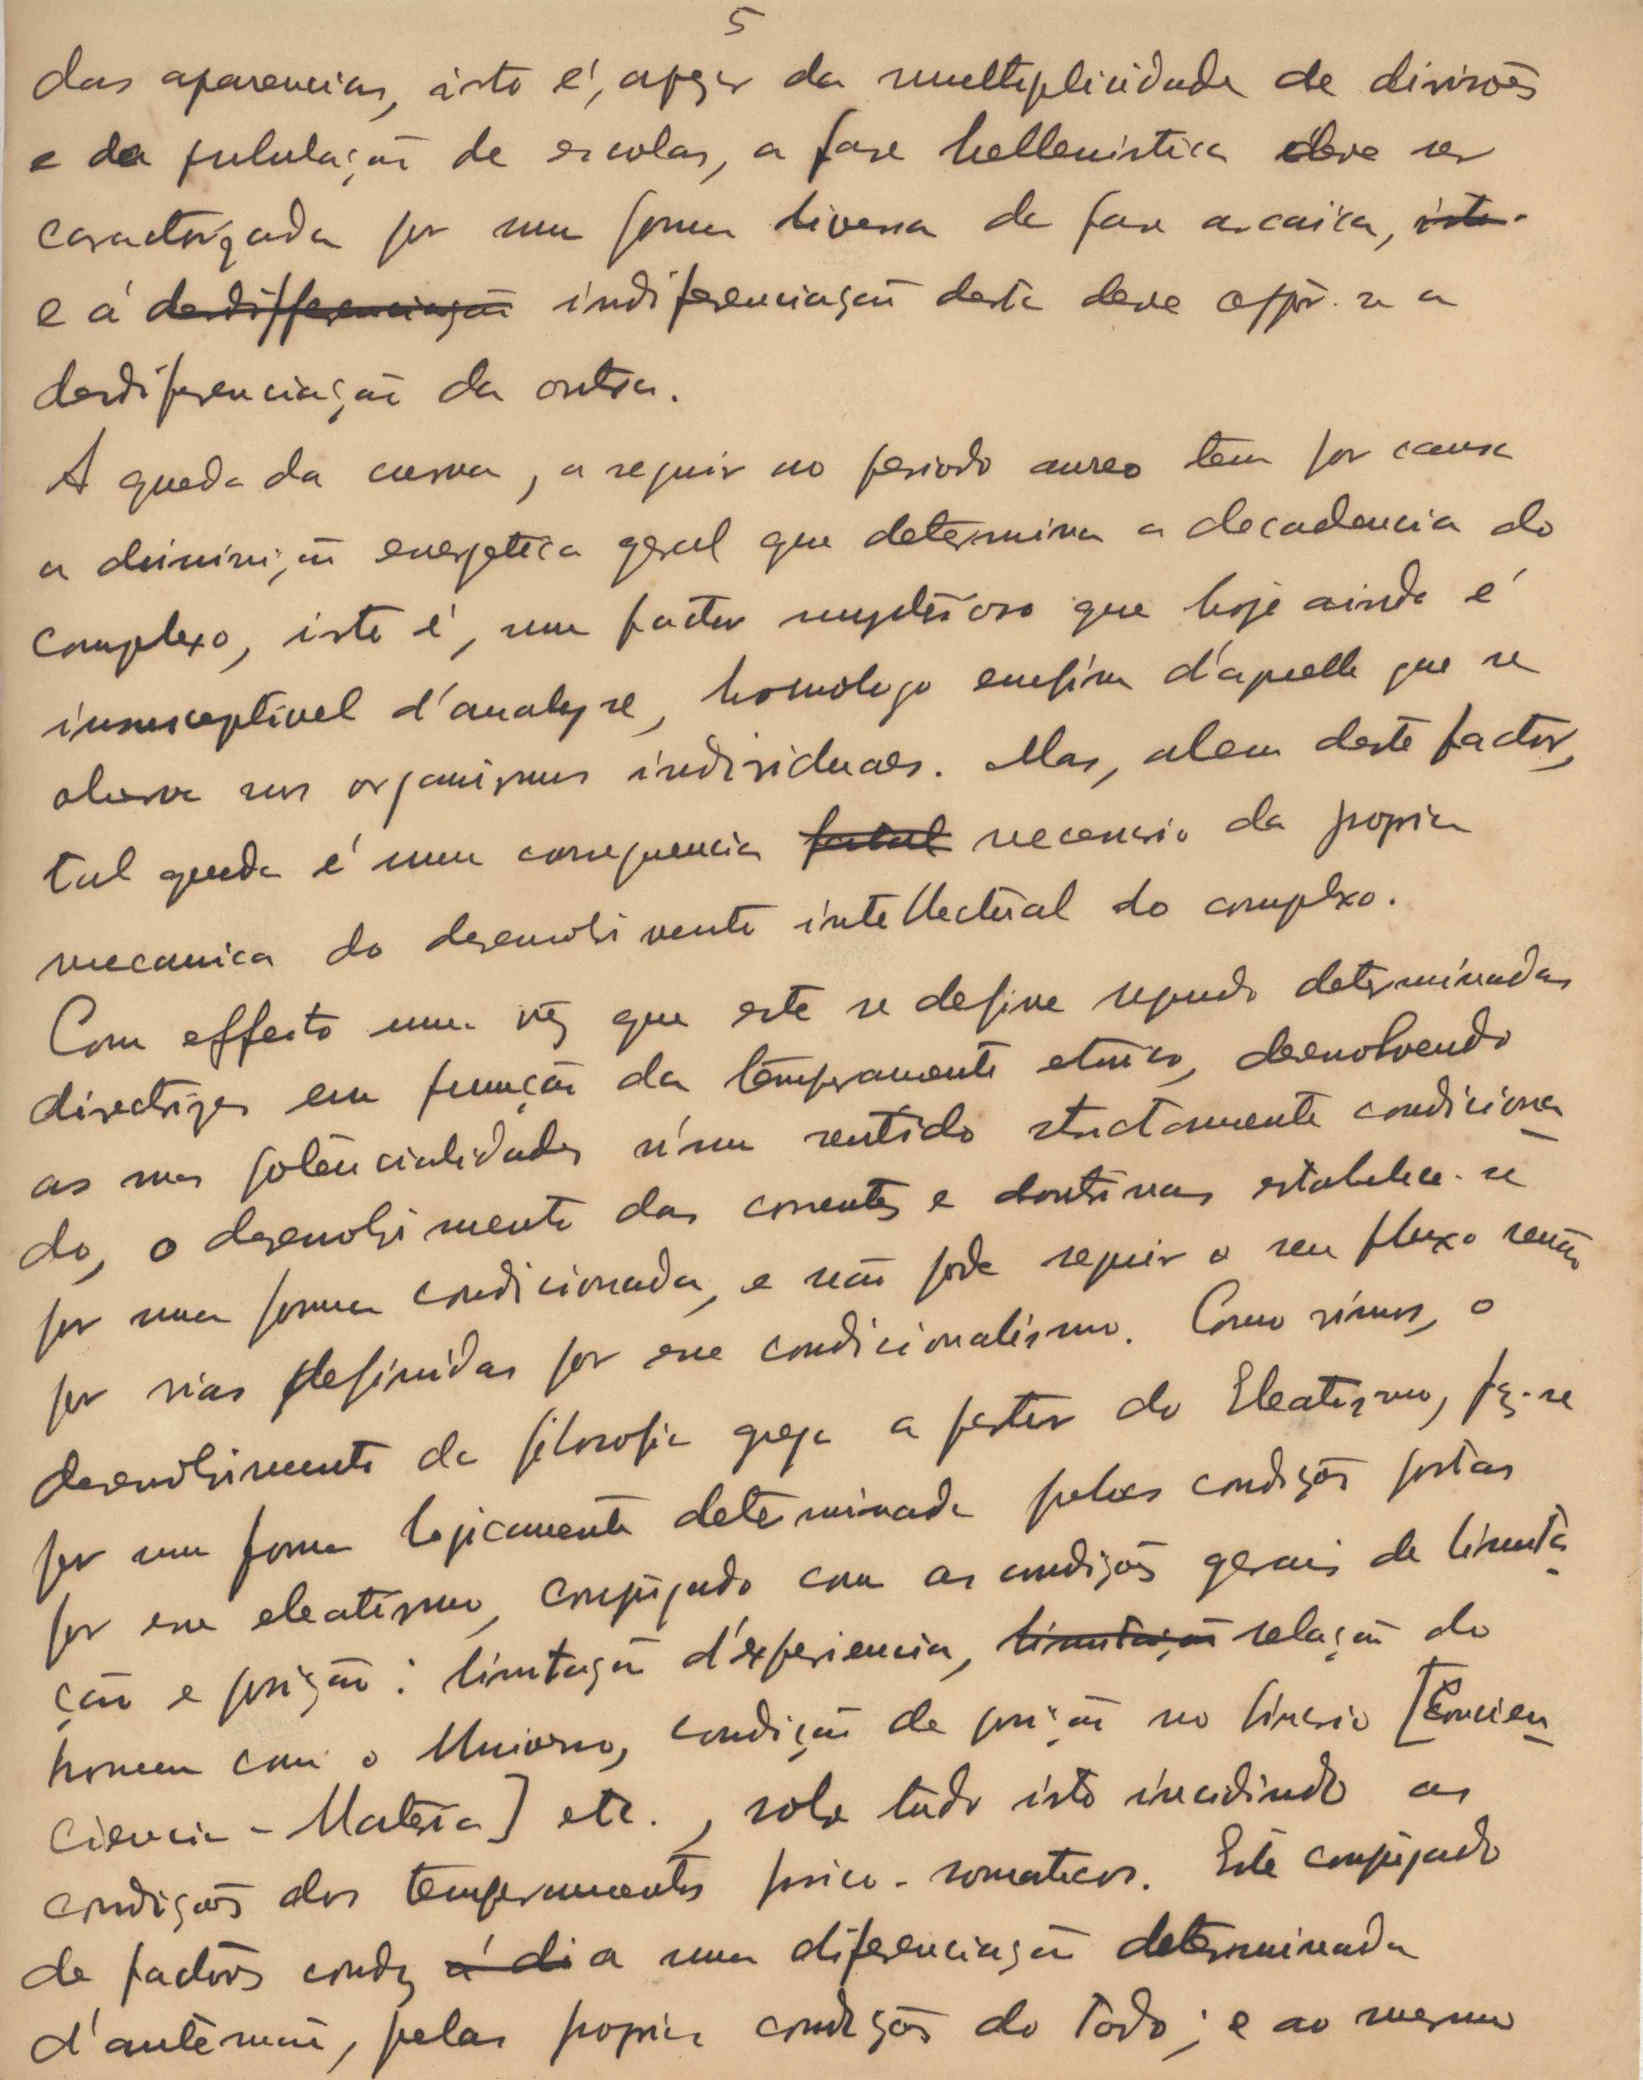 5
das aparencias, isto é, apezar da multeplicidade de divisões
e da pululação de escolas, a fase hellenistica deve ser
caracterizada por uma forma diversa da fase arcaica, isto
e á desdifferenciação indiferenciação desta deve oppôr-se a
desdiferenciação da outra.
A queda da curva, a seguir ao periodo aureo tem por causa
a diminuição energetica geral que determina a decadencia do
complexo, isto é, um factor mysterioso que hoje ainda é
insusceptivel d'analyse, homologo emfim d'aquelle que se
observa nos organismos individuaes. Mas, alem deste factor,
tal queda é uma consequencia fatal necessario da propria
mecanica do desenvolvimento intellectual do complexo.
Com effeito uma vez que este se define segundo determinadas
directrizes em função da temperamento etnico, desenvolvendo
as suas potencialidades n'um sentido strictamente condiciona
do, o desenvolvimento das correntes e doutrinas estabelece-se
por uma forma condicionada, e não pode seguir o seu fluxo senão
por vias definidas por esse condicionalismo. Como vimos, o
desenvolvimento da filosofia grega a partir do Eleatismo, fez-se
por uma forma logicamente determinada pelas condições postas
por esse eleatismo, conjugado com as condições gerais de limita
ção e posição: limitação d'experiencia, limitação relação do
homem com o Universo, condição de posição no binario [Concien
ciencia - Materia] etc., sobre tudo isto incidindo as
condições dos temperamentos psico-somaticos. Este conjugado
de factores conduz á di a uma diferenciação determinada
d'antemão, pelas propria condições do todo; e ao mesmo